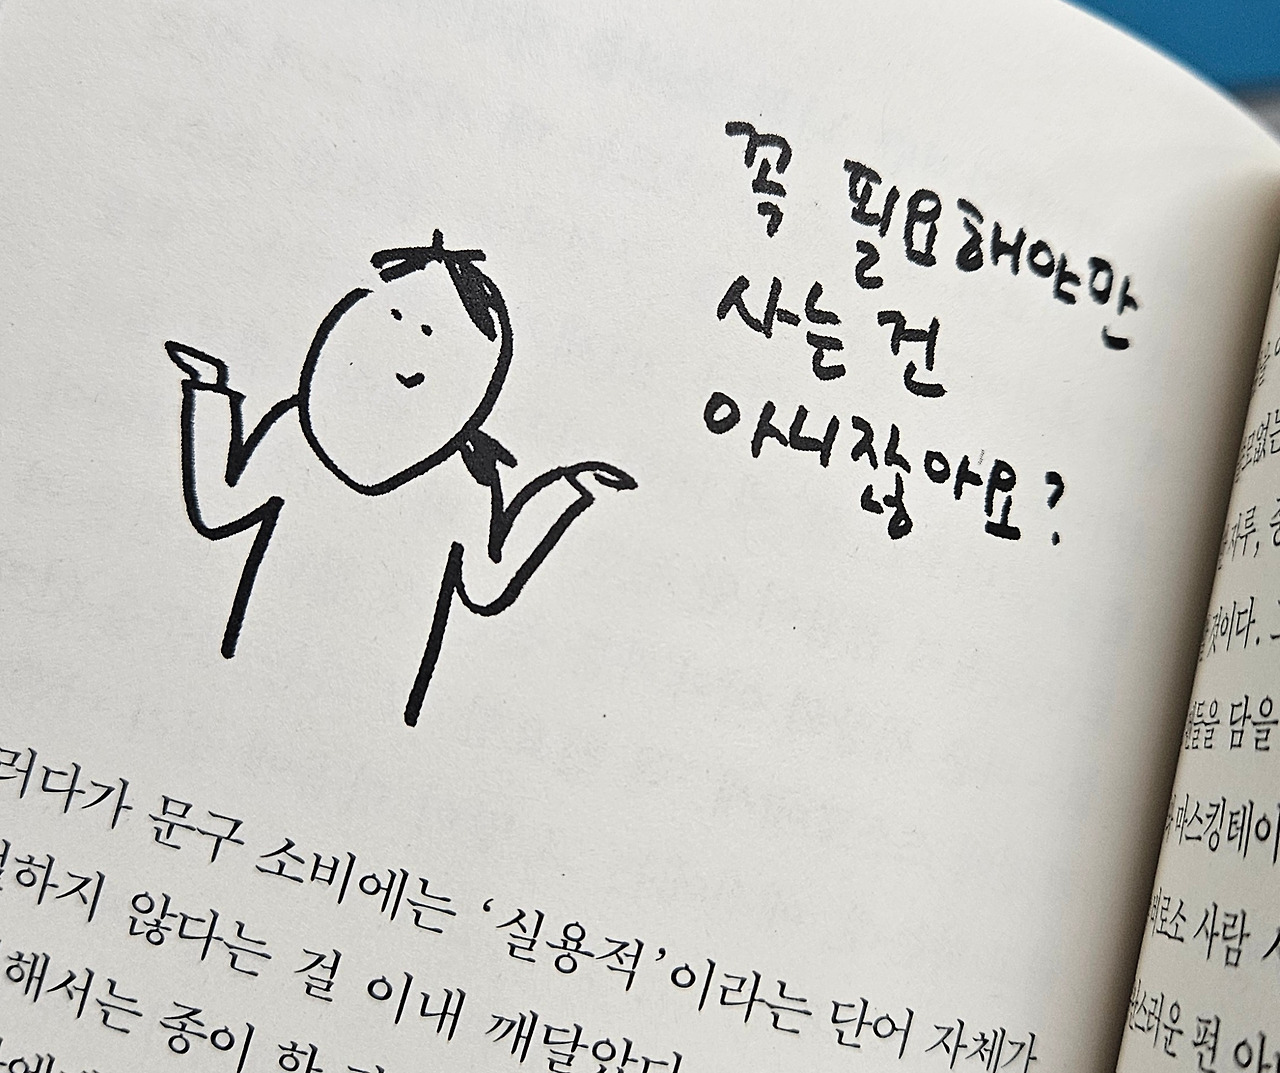 꼭 필요해야만
사는 건
아니잖아요?
러다가 문구 소비에는 '실용적'이라는 단어 자체가
하지 않다는 걸 이내 깨달았다
해서는 종이 한
자루,
것이다.
들을 담을
마스킹테이
비로소 사람
스러운 편